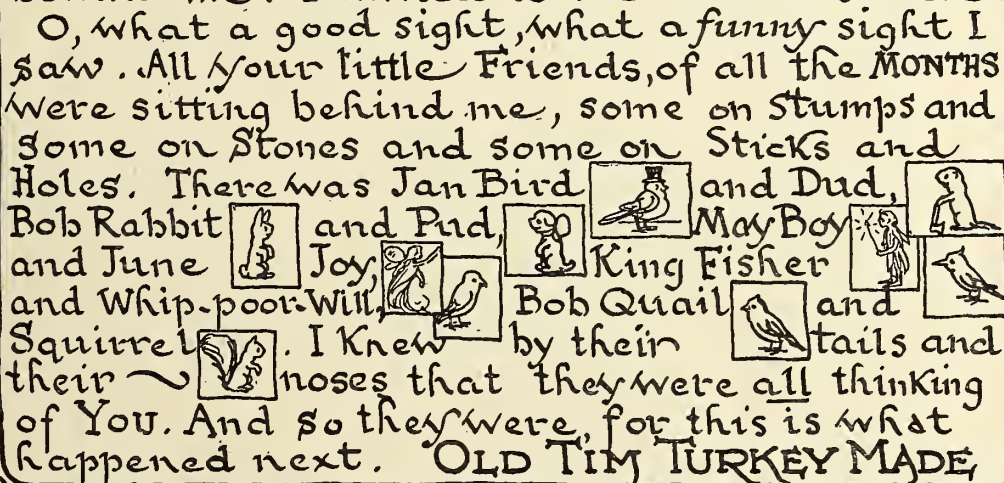 O, what a good sight, what a funny sight I
saw. All your little Friends, of all the MONTHS
were sitting behind me, some on Stumps and
some on Stones and some on Sticks and
Holes. There was Jan Bird and Dud,
Bob Rabbit and Pud, May Boy
and June Joy, King Fisher
and Whip-poor-Will, Bob Quail and
Squirrel . I Knew by their tails and
their noses that they were all thinking
of You. And so they were, for this is what
happened next. OLD TIM TURKEY MADE